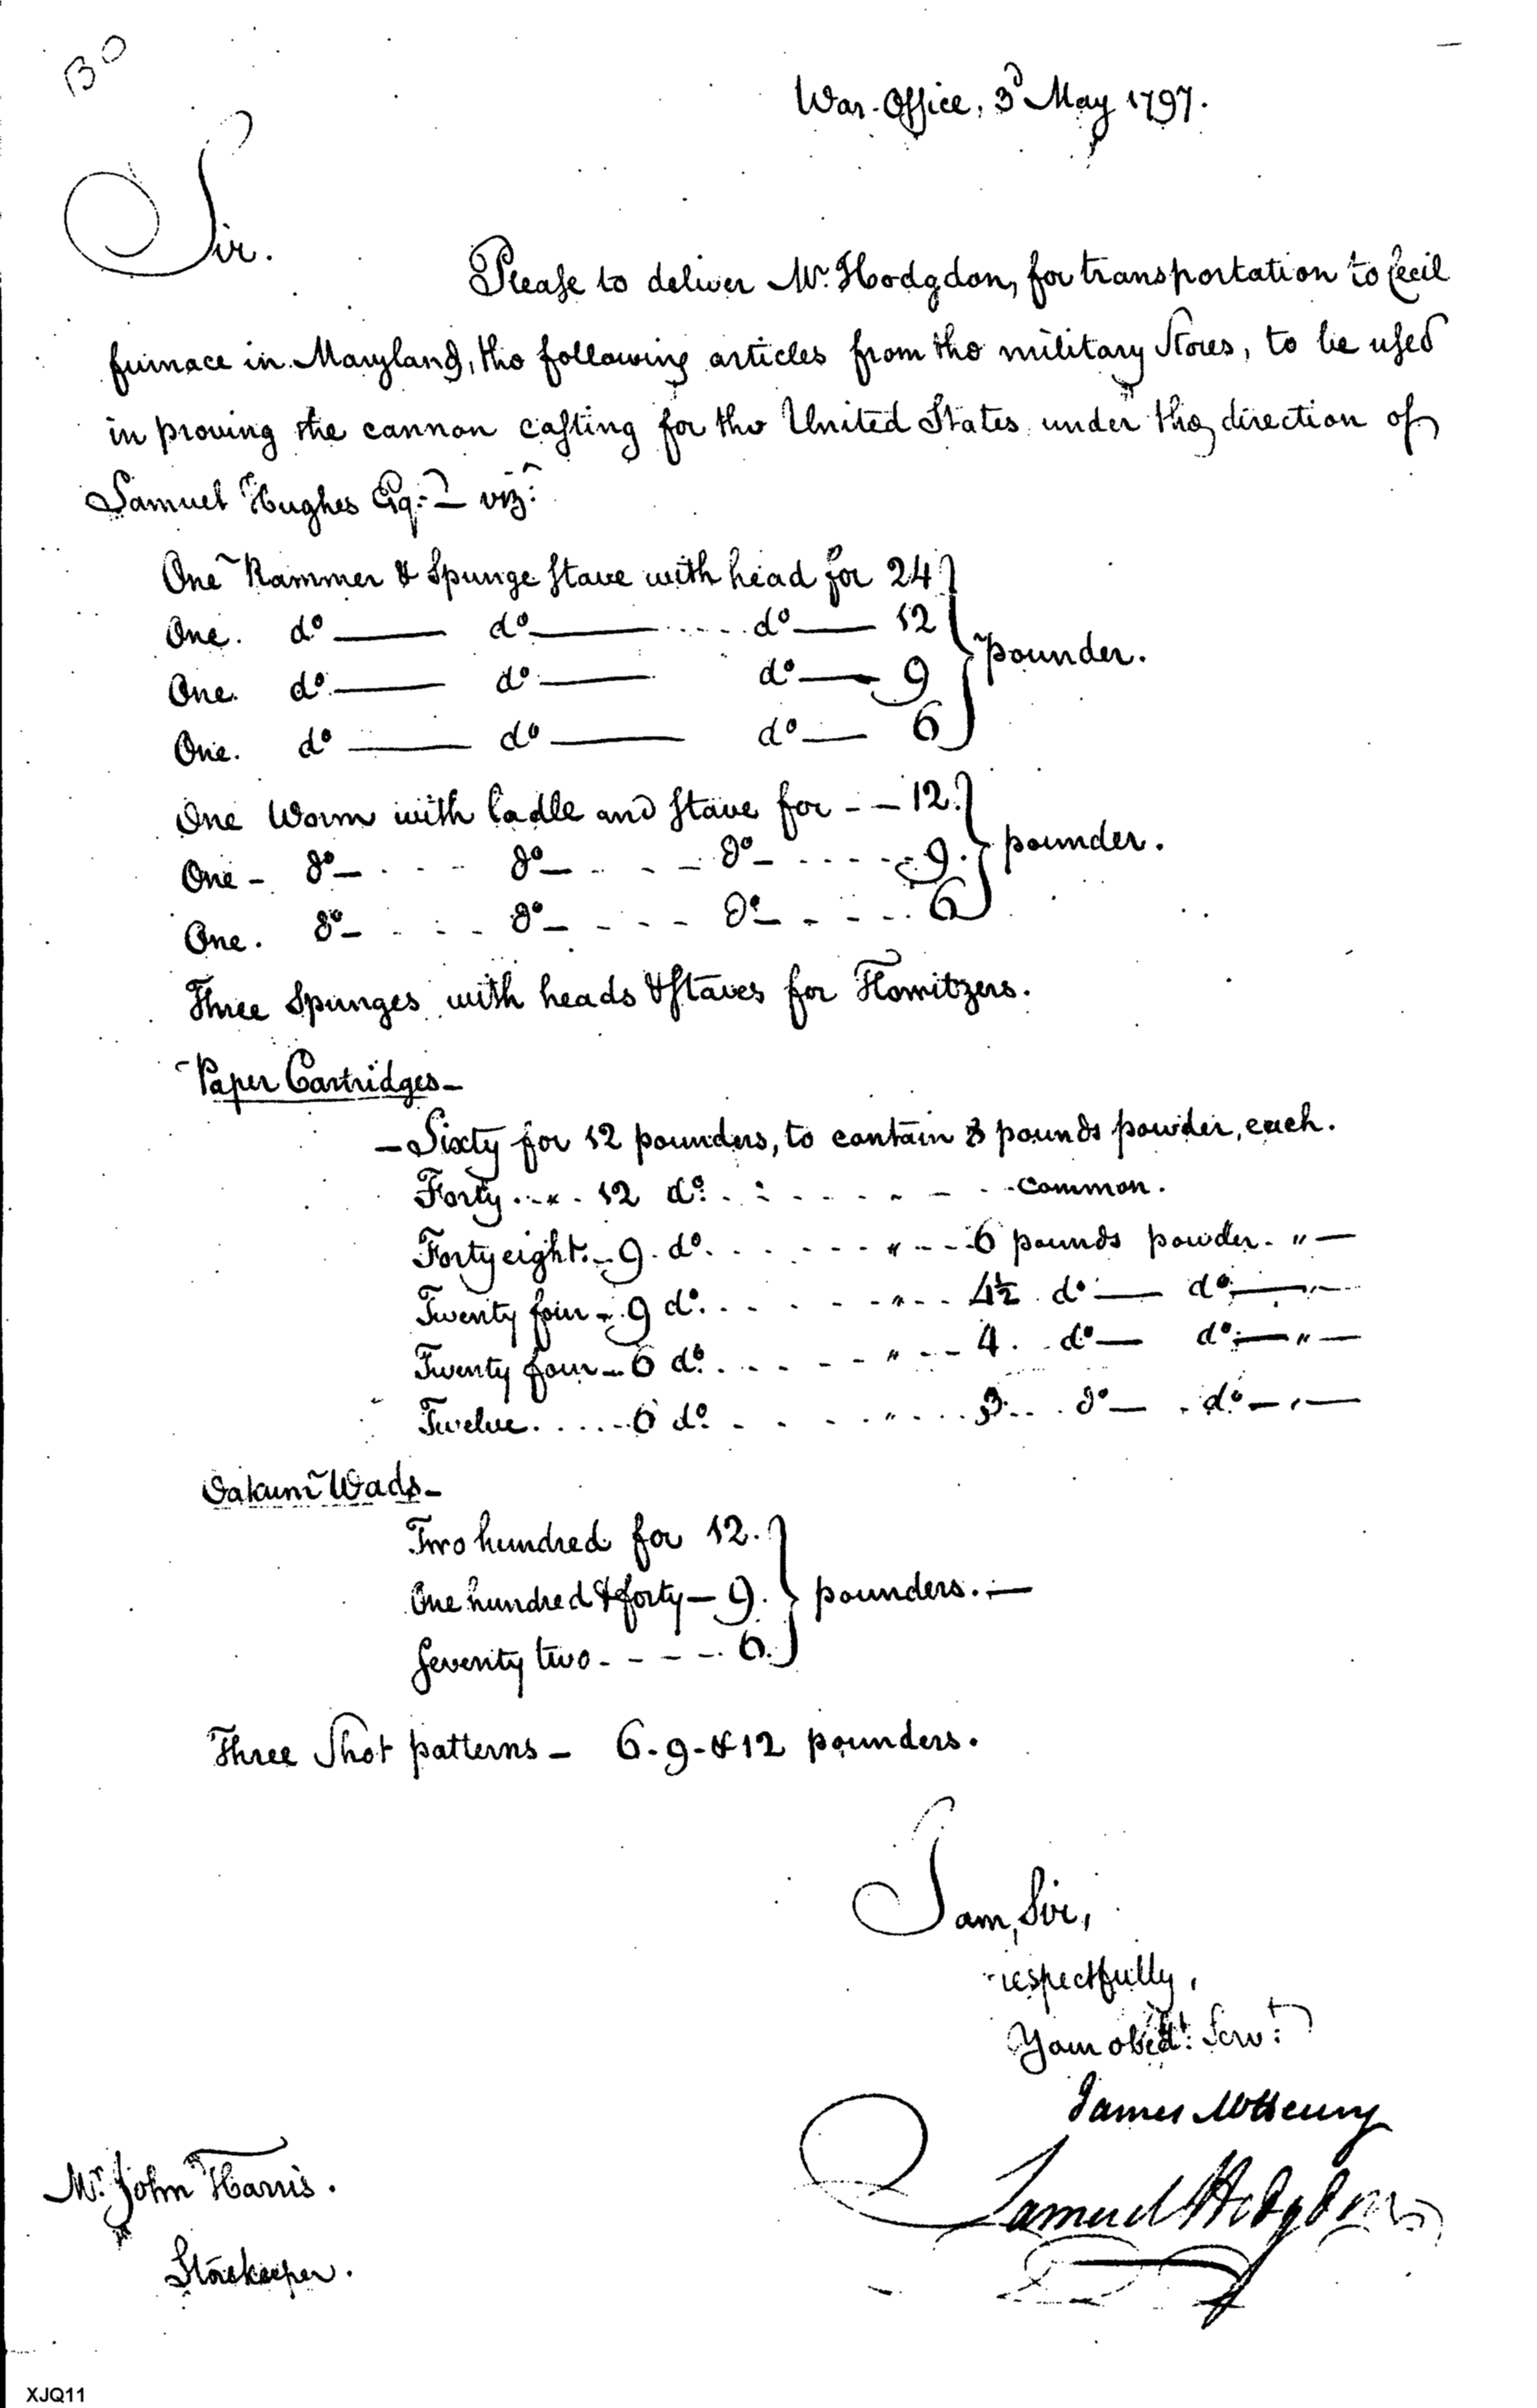 BO
War-Office, 3d May 1797.
Sir.
Please to deliver Mr. Hodgdon, for transportation to Cecil
furnace in Maryland, the following articles from the military Stores, to be used
in proving the cannon casting for the United States under the direction of
Samuel Hughes Esq: — viz:
One Rammer & Spunge stave with head for 24
One. do —— do —— do —— 12
One. do —— do —— do —— 9
One. do —— do —— do —— 6
pounder.
One Worm with ladle and stave for - — 12.
One - do — do — do — 9.
One. do — do — do — 6
pounder.
Three Spunges with heads & staves for Howitzers.
Paper Cartridges —
— Sixty for 12 pounders, to contain 8 pounds powder, each.
Forty . . " . 12 do. . . . . . . common.
Forty eight. - 9. do. . . . . " - - - 6 pounds powder. " —
Twenty four - 9 do. . . . . " - - 4½ do — do — " —
Twenty four — 6 do. . . . . " - - - 4. do — do — " —
Twelve. . . . . 6 do. . . . . " . . . . 3. . . do — do — " —
Oakum Wads —
Two hundred for 12.
One hundred & forty — 9.
Seventy two - - - - 6.
pounders. —
Three Shot patterns — 6-9-&12 pounders.
I am, Sir,
respectfully,
Your obedt: Servt:
James McHenry
Samuel Hodgdon
Mr. John Harris.
Storekeeper.
XJQ11